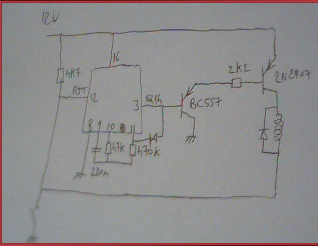 12V
16
4K7
RST
12
3
Q14
BC557
2K2
2N2907
8 9 10 11
47K
470K
220n